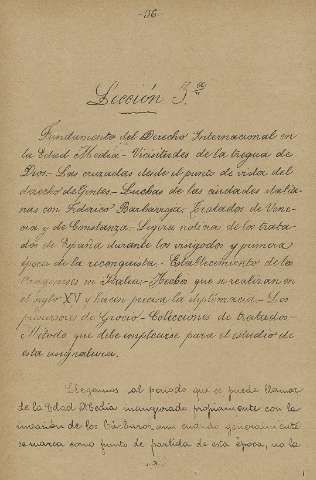 -36-
Lección 3.ª
Fundamento del Derecho Internacional en
la Edad Media - Vicisitudes de la tregua de
Dios. - Las cruzadas desde el punto de vista del
derecho de Gentes - Luchas de las ciudades italia-
nas con Federico Barbarroja, Tratados de Vene-
cia y de Constanza. - Ligera noticia de los trata-
dos de España durante los visigodos y primera
época de la reconquista. - Establecimiento de los
Aragoneses en Italia. - Hechos que se realizan en
el siglo XV y hacen precisa la diplomacia. - Los
precursores de Grocio - Colecciones de tratados -
Método que debe emplearse para el estudio de
esta asignatura.
Llegamos al periodo que se puede llamar
de la Edad Media inaugurado propiamente con la
invasión de los Bárbaros aun cuando generalmente
se marca como punto de partida de esta época, no la